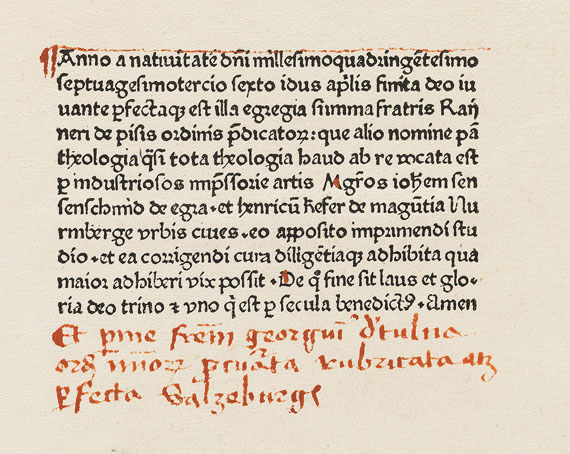 ¶Anno a natiuitate dn̄i millesimoquadringētesimo
septuagesimotercio sexto idus ap̄lis finita deo iu
uante ꝑfectaqꝫ est illa egregia summa fratris Raÿ
neri de pisis ordinis p̄dicatoꝝ: que alio nomine pā
theologia q̄si tota theologia haud ab re vocata est
ꝑ industriosos imp̄ssorie artis Mgr̄os ioh̄em sen
senschmid de egra · et henricū kefer de magūtia Nu
rmberge vrbis ciues · eo apposito imprimendi stu
dio · et ea corrigendi cura diligētiaqꝫ adhibita qua
maior adhiberi vix possit · De qͦ fine sit laus et glo-
ria deo trino ⁊ vno qͥ est ꝑ secula benedictꝰ · Amen
Et pme fr̄em georgiū d'tulna
ord' mīnoꝝ ꝑ rubricata atꝫ
ꝑfecta Salzeburge